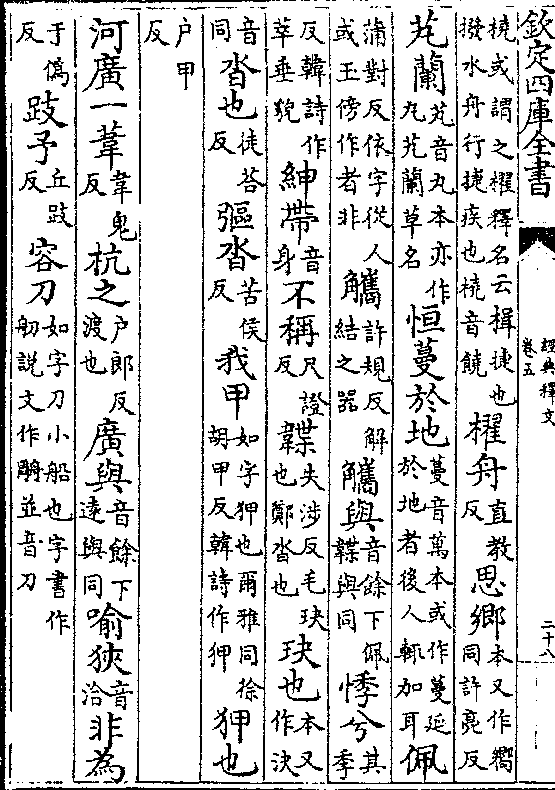 欽定四庫全書
經典釋文
卷五
二十八
橈或謂之櫂釋名云楫捷也撥水舟行捷疾也橈音饒櫂舟直教反思鄉本又作嚮同許亮反
芄蘭芄音丸本亦作丸芄蘭草名恒蔓於地蔓音萬本或作蔓延於地者後人輒加耳佩
蒲對反依字從人或玉傍作者非觿許規反解結之器觿與音餘下佩韘與同悸兮其季
反韓詩作萃垂貌紳帶音身不稱尺證反韘失涉反毛玦也鄭沓也玦也本又作決
音同沓也徒荅反彄沓苦侯反我甲如字狎也爾雅同徐胡甲反韓詩作狎狎也
户甲反
河廣一葦韋鬼反杭之户郎反渡也廣與音餘下遠與同喻狹音洽非為
于偽反跂予丘跂反容刀如字刀小船也字書作舠説文作並音刀